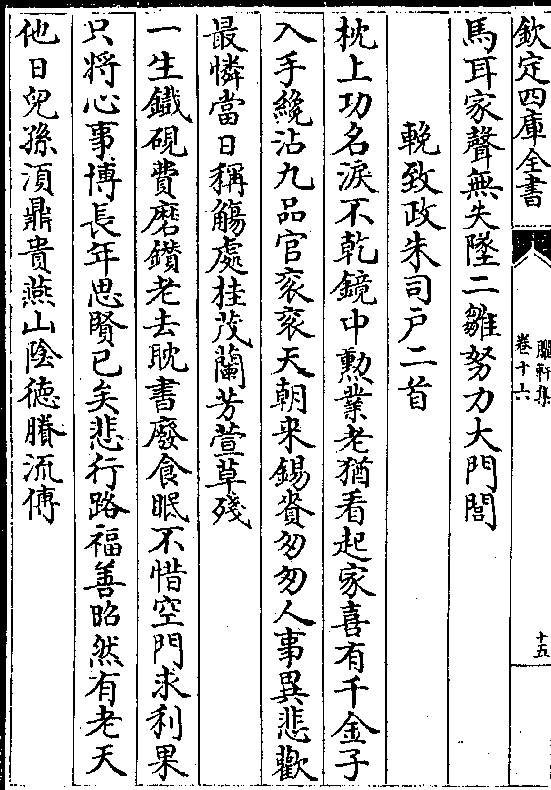 欽定四庫全書
臞軒集
卷十六
十五
馬耳家聲無失墜二雛努力大門閭
輓致政朱司戶二首
枕上功名淚不乾鏡中勲業老猶看起家喜有千金子
入手纔沾九品官衮衮天朝來錫賚匆匆人事異悲歡
最憐當日稱觴處桂茂蘭芳萱草殘
一生鐵硯費磨鑚老去耽書廢食眠不惜空門求利果
只將心事博長年思賢已矣悲行路福善昭然有老天
他日兒孫湏鼎貴燕山陰徳賸流傳